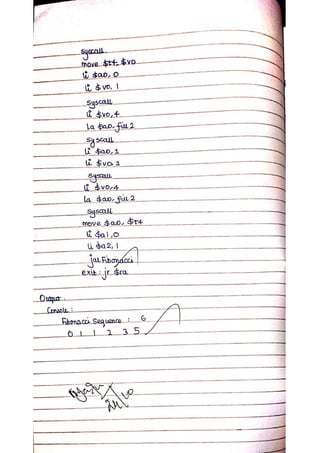 syscall
move $t4, $v0
li $a0, 0
li $v0, 1
syscall
li $v0, 4
la $a0, fill 2
syscall
li $a0, 1
li $v0 1
syscall
li $v0, 4
la $a0, fill 2
syscall
move $a0, $t4
li $a1, 0
li $a2, 1
jal Fibonacci
exit: jr $ra
Output:
Console:
Fibonacci Sequence : 6
0 1 1 2 3 5